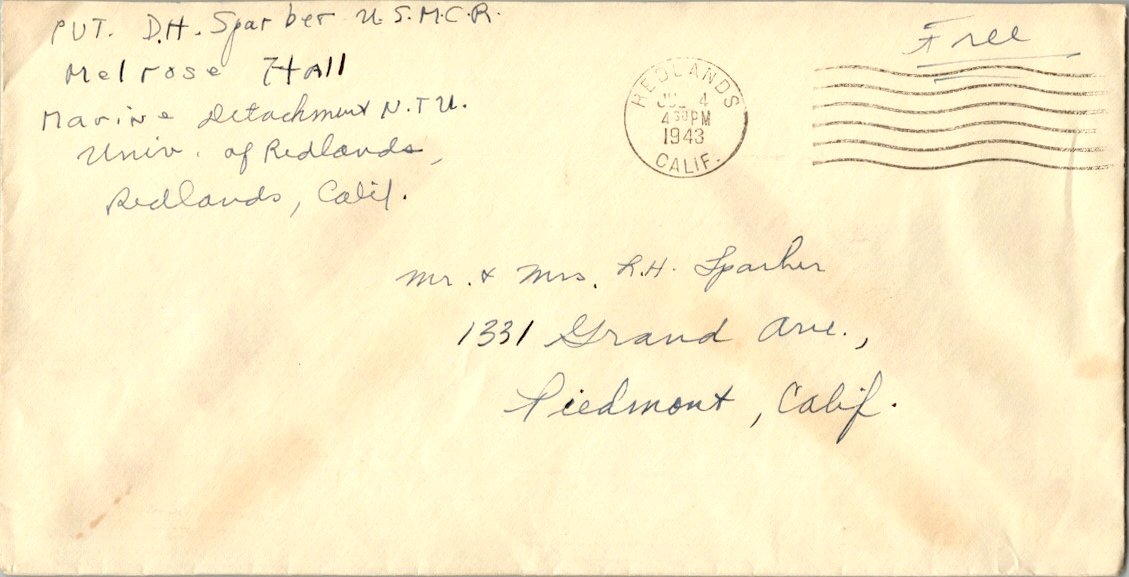 PVT. D.H. Sparber U.S.M.C.R.
Melrose Hall
Marine Detachment N.T.U.
Univ. of Redlands,
Redlands, Calif.
Free
REDLANDS
JUL 4
4 30 PM
1943
CALIF.
Mr. & Mrs. R.H. Sparber
1331 Grand Ave.,
Piedmont, Calif.